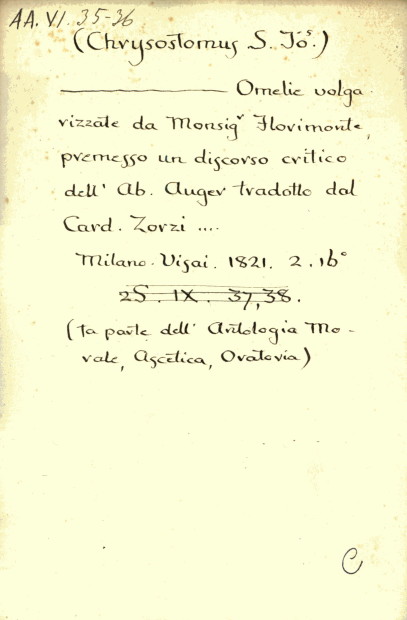 AA. VI. 35-36
(Chrysostomus S. Joˢ.)
———— Omelie volga
rizzate da Monsigʳ Florimonte,
premesso un discorso critico
dell' Ab. Auger tradotto dal
Card. Zorzi ....
Milano. Visai. 1821. 2. 16°
2S. IX. 37,38.
(fa parte dell' Antologia Mo-
rale, Ascetica, Oratoria)
C